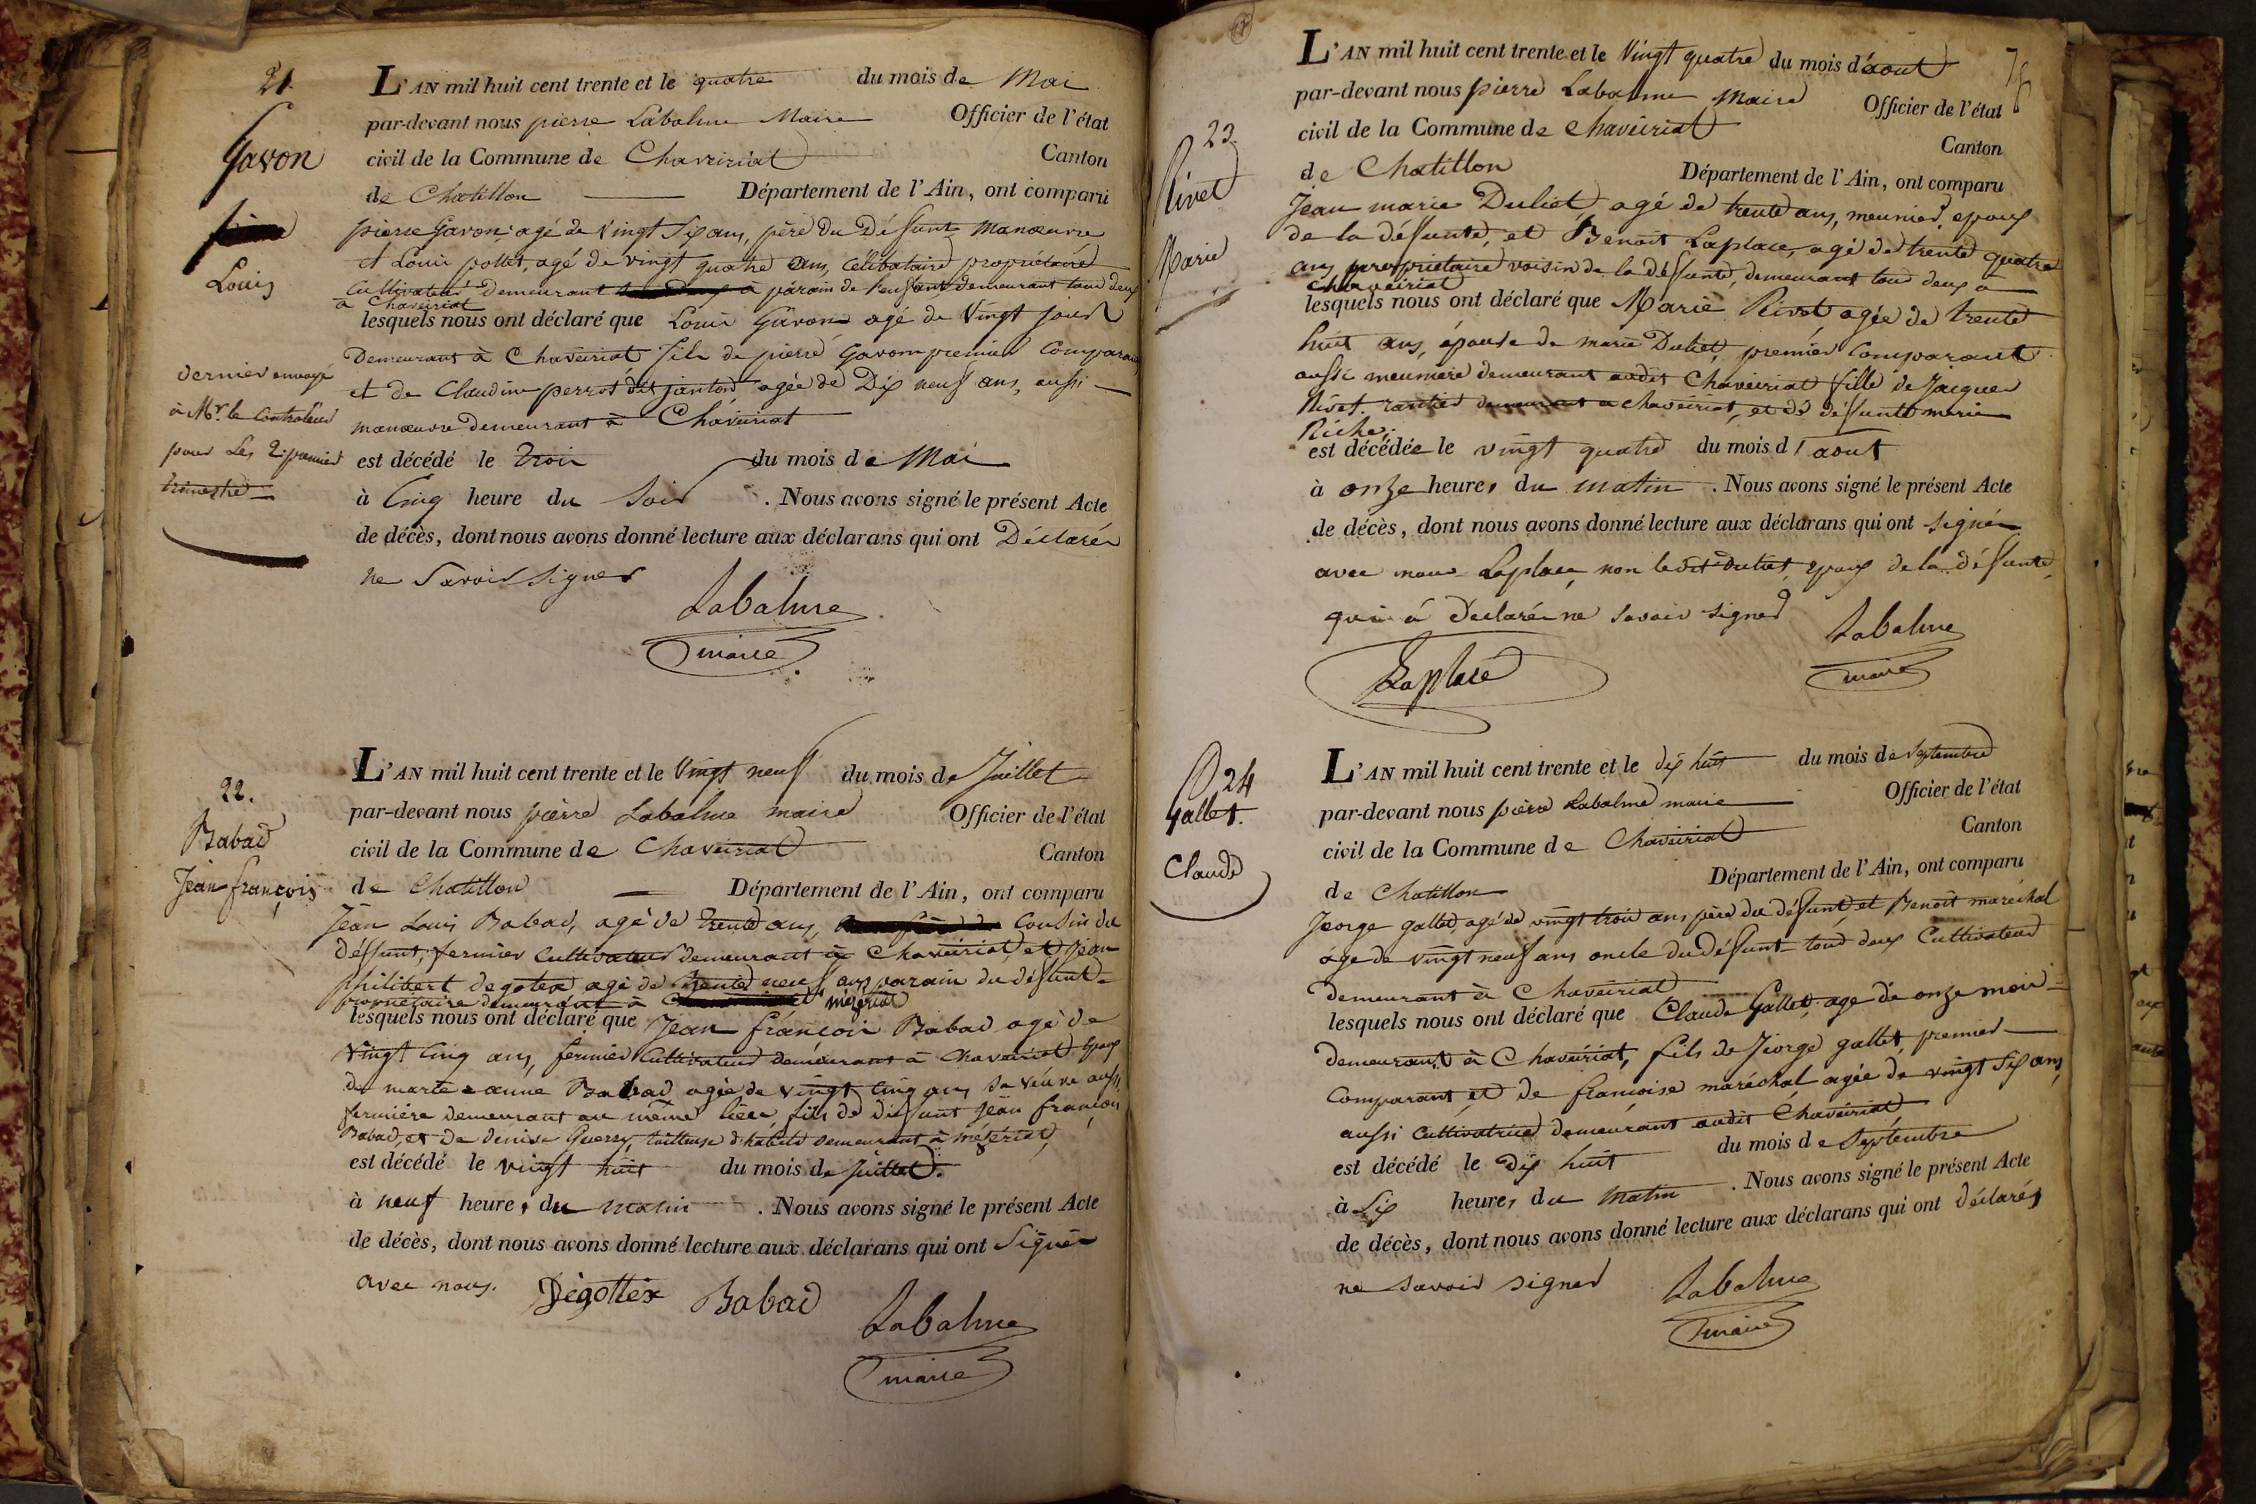 21.
Gavon
Louis
dernier envoyé
à Mr. le controleur
pour Les 2 premier
trimestre
L'AN mil huit cent trente et le quatre du mois de Mai
par-devant nous pierre Labalme Maire Officier de l'état
civil de la Commune de Chaveiriat Canton
de Chatillon Département de l'Ain, ont comparu
pierre Gavon agé de vingt six ans, père du Défunt Manœuvre
et Louis pollet, agé de vingt quatre ans, célibataire propriétaire
Cultivateur Demeurant parain de l'enfant, demeurant tous deux
à Chaveiriat
lesquels nous ont déclaré que Louis Gavon agé de Vingt jours
Demeurant à Chaveiriat fils de pierre Gavon premier Comparant
et de Claudine perrot dit janton agée de Dix neuf ans, aussi
manœuvre demeurant à Chaveiriat
est décédé le trois du mois de Mai
à Cinq heure du Soir . Nous avons signé le présent Acte
de décès, dont nous avons donné lecture aux déclarans qui ont Déclarés
ne Savoir signer
Labalme
maire
22.
Babad
Jean françois
L'AN mil huit cent trente et le Vingt neuf du mois de Juillet
par-devant nous pierre Labalme maire Officier de l'état
civil de la Commune de Chaveiriat Canton
de Chatillon Département de l'Ain, ont comparu
Jean Louis Babad, agé de trente ans, Cousin du
déffunt, fermier Cultivateur demeurant à Chaveiriat, et Jean
philibert degotex agé de trente neuf ans parain du déffunt
propriétaire demeurant à mézériat
lesquels nous ont déclaré que Jean françois Babad agé de
Vingt Cinq ans, fermier Cultivateur demeurant à Chaveiriat Epoux
de marie anne Babad agée de vingt cinq ans sa veuve aussi
fermière demeurant au même lieu fils de deffunt Jean françois
Babad, et de denise Guerry, tailleuse d'habits demeurant à mézériat,
est décédé le vingt huit du mois de Juillet.
à neuf heures du matin . Nous avons signé le présent Acte
de décès, dont nous avons donné lecture aux déclarans qui ont Signés
avec nous. Dégottéx Babad
Labalme
maire
23.
Rivet
Marie
L'AN mil huit cent trente et le Vingt quatre du mois d'aout
par-devant nous pierre Labalme Maire Officier de l'état
civil de la Commune de Chaveiriat Canton
de Chatillon Département de l'Ain, ont comparu
Jean marie Duliet agé de trente ans, meunier, epoux
de la défunte, et Benoit Laplace, agé de trente quatre
ans, propriétaire voisin de la défunte, demeurant tous deux à
Chaveiriat
lesquels nous ont déclaré que Marie Rivet agée de trente
huit ans, épouse de marie Duliet, premier Comparant
aussi meuniere demeurant audit Chaveiriat fille de Jacques
Rivet rentier demeurant à Chaveiriat, et de défunte marie
Riche.
est décédée le vingt quatre du mois d'aout
à onze heures du matin . Nous avons signé le présent Acte
de décès, dont nous avons donné lecture aux déclarans qui ont signés
avec nous Laplace, non ledit Duliet, epoux de la défunte,
qui à Déclaré ne savoir signer
Labalme
maire
Laplace
24
Gallet.
Claude
L'AN mil huit cent trente et le dix huit du mois de Septembre
par-devant nous pierre Labalme maire Officier de l'état
civil de la Commune de Chaveiriat Canton
de Chatillon Département de l'Ain, ont comparu
Jeorge gallet, agé de vingt trois ans père du défunt et Benoit maréchal
âgé de vingt neuf ans oncle du défunt tous deux Cultivateurs
demeurant à Chaveiriat
lesquels nous ont déclaré que Claude Gallet, agé de onze mois
demeurant à Chaveiriat, fils de Jeorge gallet, premier
Comparant et de françoise maréchal agée de vingt six ans,
aussi Cultivatrice demeurant audit Chaveiriat
est décédé le dix huit du mois de Septembre
à Six heures du matin . Nous avons signé le présent Acte
de décès, dont nous avons donné lecture aux déclarans qui ont déclarés
ne savoir signer
Labalme
maire